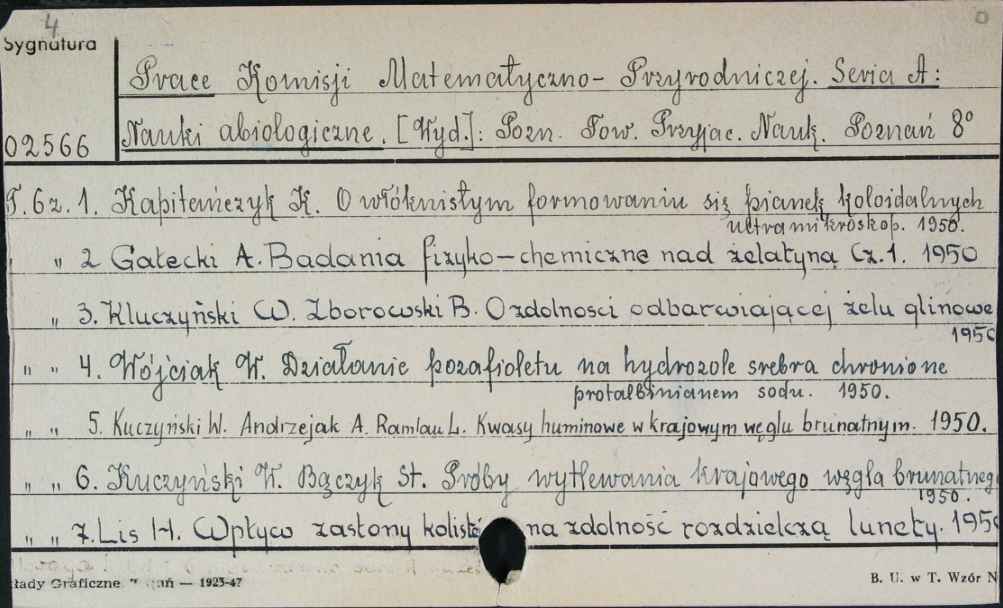 4
Sygnatura
02566
Prace Komisji Matematyczno-Przyrodniczej. Seria A:
Nauki abiologiczne. [Wyd.]: Pozn. Tow. Przyjac. Nauk. Poznań 8°
T. 6 z. 1. Kapitańczyk K. O włóknistym formowaniu się pianek koloidalnych
ultramikroskop. 1950.
" " 2 Gałecki A. Badania fizyko-chemiczne nad żelatyną Cz. 1. 1950
" 3. Kluczyński W. Zborowski B. O zdolnosci odbarwiającej żelu glinowe
1950
" " 4. Wójciak W. Działanie pozafioletu na hydrozole srebra chronione
protalbinianem sodu. 1950.
" " 5. Kuczyński W. Andrzejak A. Ramlau L. Kwasy huminowe w krajowym węglu brunatnym. 1950.
" " 6. Kuczyński W. Bączyk St. Próby wytlewania krajowego węgla brunatneg
1950.
" " 7. Lis H. Wpływ zasłony kolist na zdolność rozdzielczą lunety. 195
łady Graficzne — 1925-47
B. U. w T. Wzór N